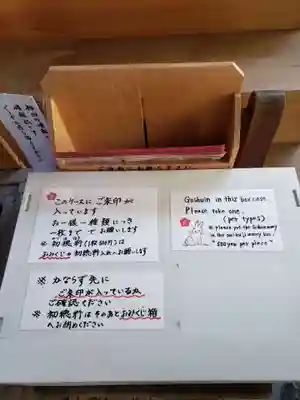 このケースに ご朱印が
入っています
お一様一種類につき
一枚まで でお願いします
※ 初穂料(1枚500円)は
おみくじの初穂料入れへお願いします
Goshuin in this box case.
Please take one.
(per types)
"500 yen per piece"
※ かならず先に
ご朱印が入っているか
ご確認ください
※ 初穂料はそのあとおみくじ箱
へお納めください